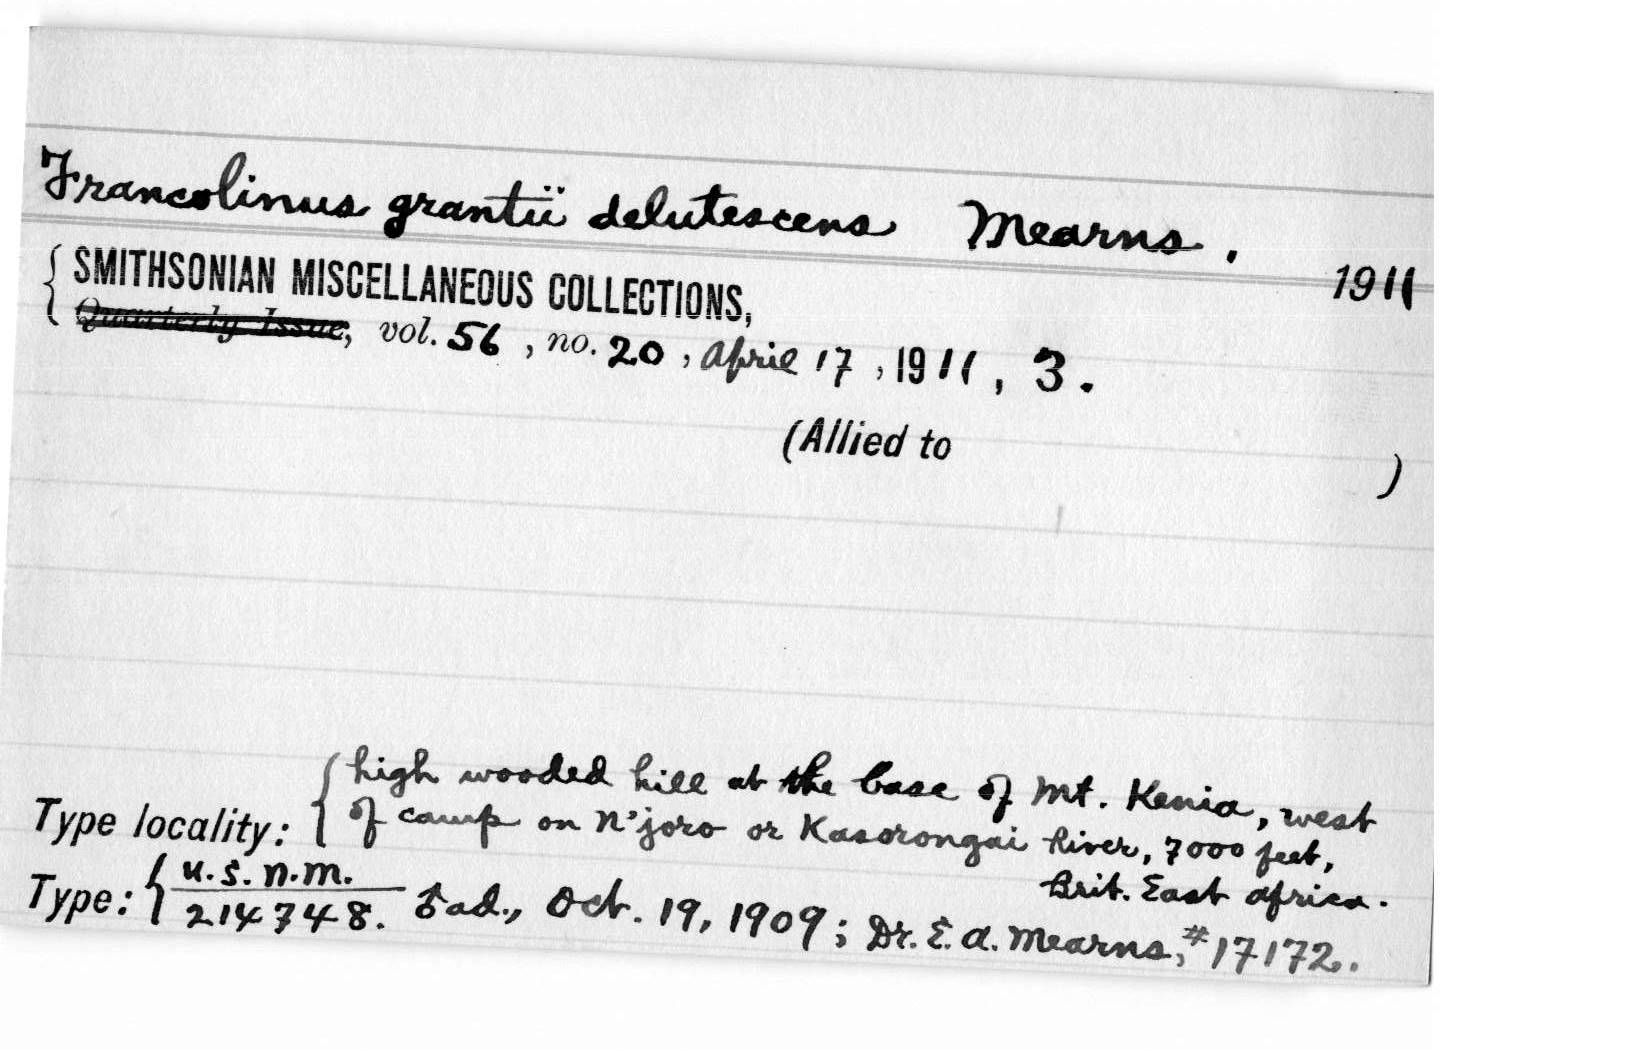 Francolinus grantii delutescens Mearns.
1911
SMITHSONIAN MISCELLANEOUS COLLECTIONS,
Quarterly Issue, vol. 56, no. 20, April 17, 1911, 3.
(Allied to )
high wooded hill at the base of Mt. Kenia, west
Type locality: of camp on N'joro or Kasorongai River, 7000 feet,
Brit. East Africa.
U.S.N.M.
Type: 214748. ♂ ad., Oct. 19, 1909; Dr. E. A. Mearns, #17172.